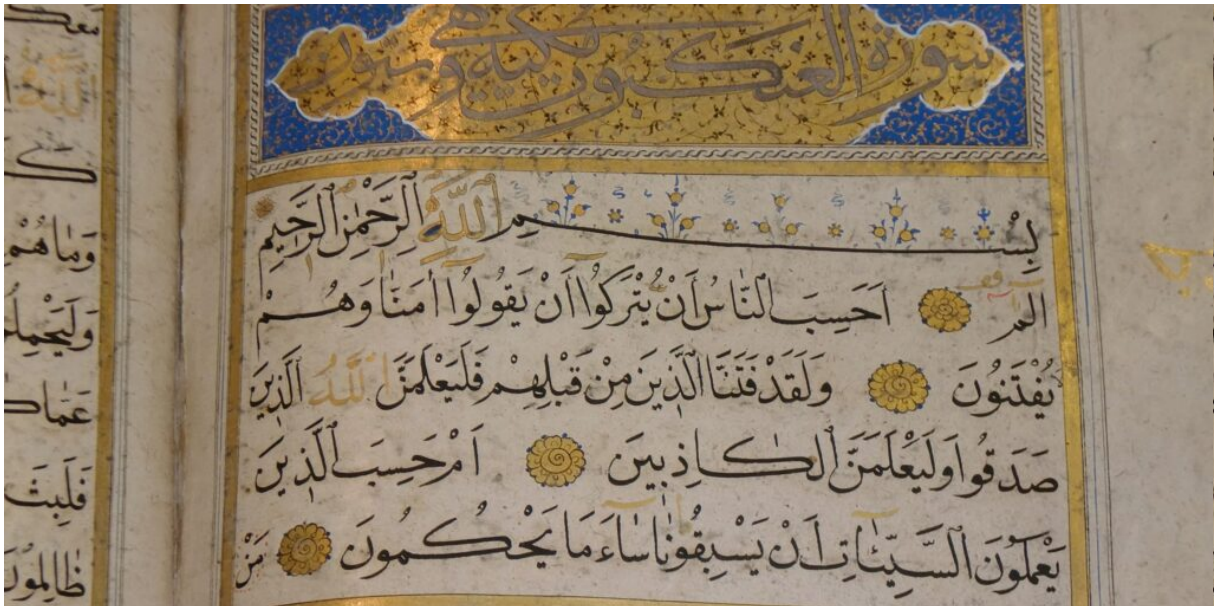 سورة العنكبوت مكية وهي وستون
بِسْمِ ٱللَّهِ ٱلرَّحْمٰنِ ٱلرَّحِيمِ
الم اَحَسِبَ ٱلنَّاسُ اَنْ يُتْرَكُوٓا اَنْ يَقُولُوٓا اٰمَنَّا وَهُمْ
يُفْتَنُونَ وَلَقَدْ فَتَنَّا ٱلَّذِينَ مِنْ قَبْلِهِمْ فَلَيَعْلَمَنَّ ٱللَّهُ ٱلَّذِينَ
صَدَقُوا وَلَيَعْلَمَنَّ ٱلْكَاذِبِينَ اَمْ حَسِبَ ٱلَّذِينَ
يَعْمَلُونَ ٱلسَّيِّـَٔاتِ اَنْ يَسْبِقُونَا سَٓاءَ مَا يَحْكُمُونَ مَنْ
ٱللَّهُ
وَمَا هُمْ
فَلَبِثَ
ظَالِمُونَ